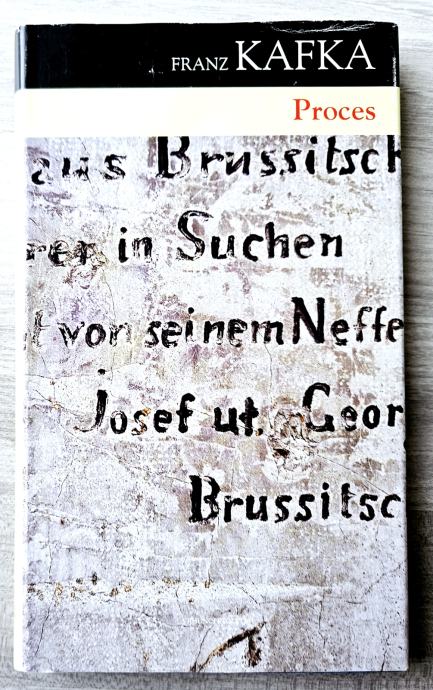 FRANZ KAFKA
Proces
aus Brussitsch
rer in Suchen
t von seinem Neffe
Josef ut. Geor
Brussitsc